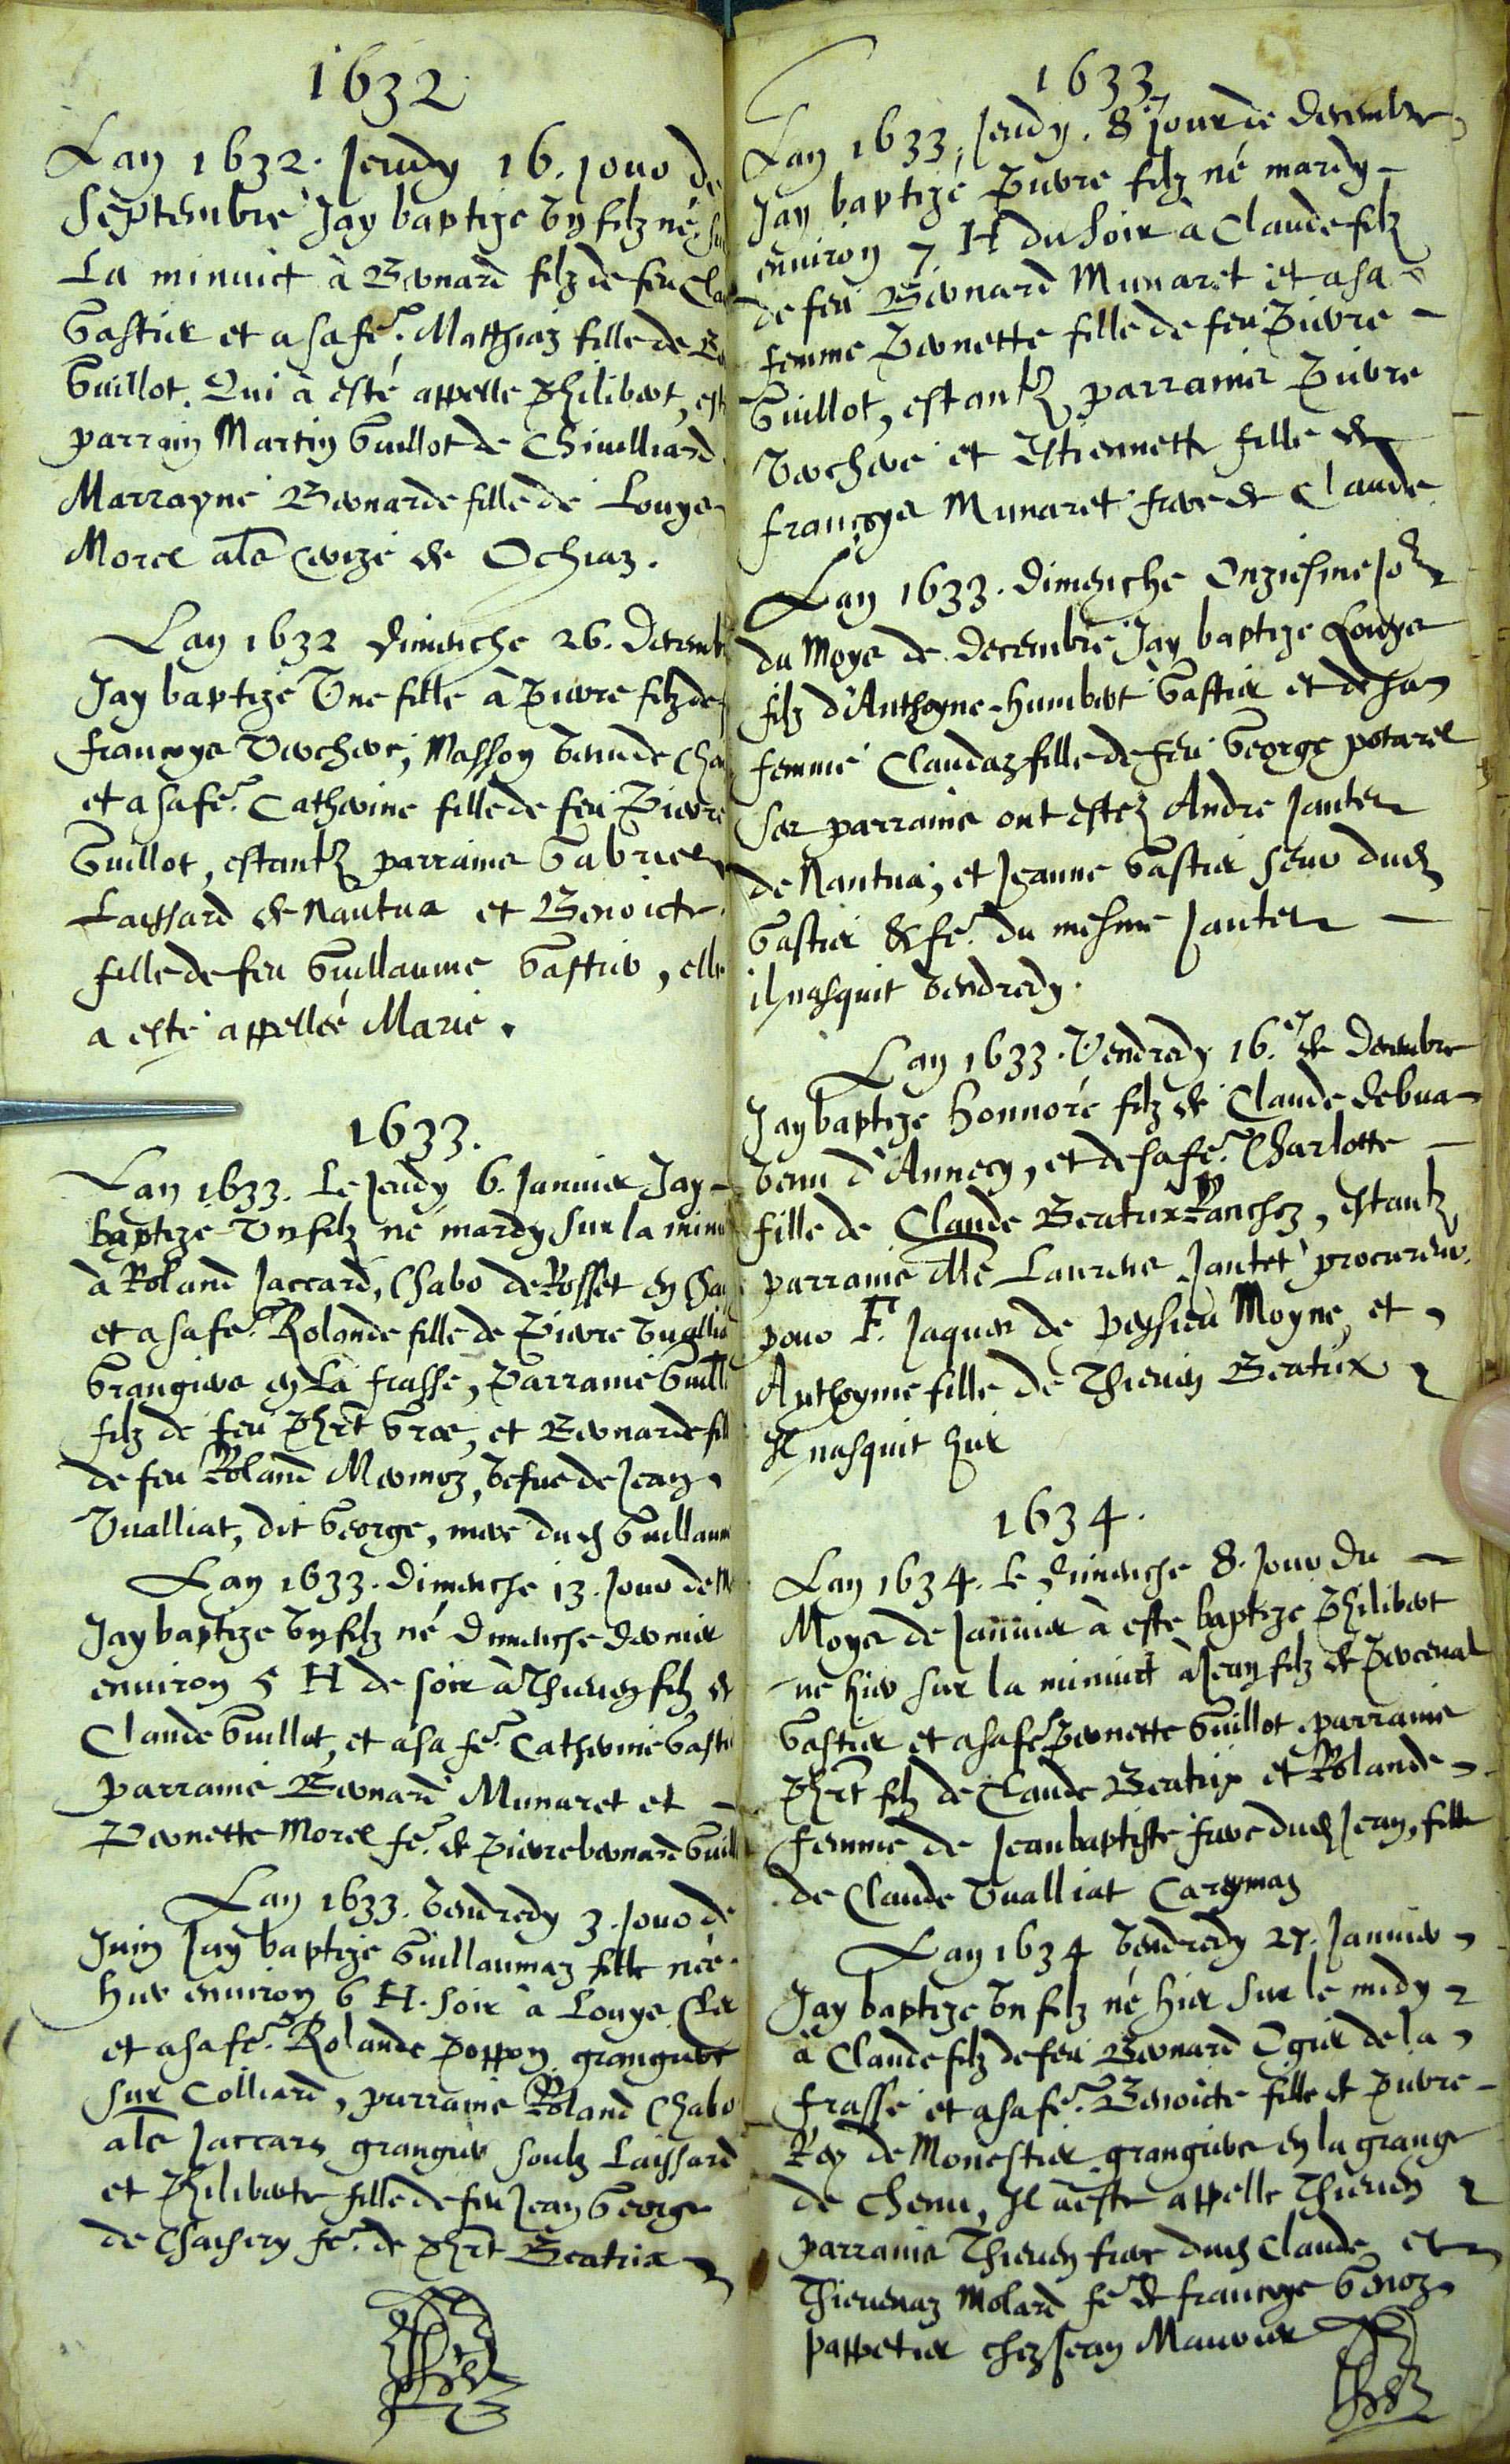 1632
Lan 1632. Jeudy 16. jour de
Septembre Jay baptize Un filz né
La minuict à Bernard filz de feu
Gastier et a sa fe. Matthiaz fille de
Guillot. Qui à esté appelle Philibert,
parrain Martin Guillot de Chiuilliard
Marrayne Bernarde fille de Louys
Morel als Cerizé de Ochiaz.
Lan 1632 dimenche 26. Decemb
Jay baptizé Une fille à Pierre filz de
Françoys Verchere, Masson venu de
et a sa fe. Catherine fille de feu Pierre
Guillot, estantz parrains Gabriel
Laissard de Nantua et Benoicte
fille de feu Guillaume Gastier, elle
a esté appellée Marie.
1633.
Lan 1633. Le Jeudy 6. Januier Jay
baptizé Un filz né mardy sur la minu
à Roland Jaccard, Chabo de Rosset en
et a sa fe. Rolande fille de Pierre
Grangiers en La frasse, Parrains Guill
filz de feu Phrt Gros, et Bernarde fil
de feu Roland Mermoz, vefue de Jean
Vualliat, dit George, mere dud Guillaum
Lan 1633. Dimenche 13. Jour de
Jay baptize Un filz né Dimenche dernier
enuiron 5 H de soir à Thieuen filz de
Claude Guillot, et a sa fe. Catherine Gasti
parrains Bernard Munaret et
Pernette Morel fe. de Pierre bernard Guill
Lan 1633. Vendredy 3. Jour de
Juin Jay baptize Guillaumaz fille née
hier enuiron 6 H. soir à Louys Cler
et a sa fe. Rolande Poppon grangiers
sur Colliard, parrains Roland Chabo
als Jaccard grangier soubz Laissard
et Philiberte fille de feu Jean George
de Chaisery fe. de Phrt Beatrix
1633
Lan 1633, Jeudy. 8 jour de Decembre
Jay baptizé Pierre filz né mardy
enuiron 7 H du soir à Claude filz
de feu Bernard Munaret et a sa
femme Pernette fille de feu Pierre
Guillot, estantz parrains Pierre
Verchere et Estiennette fille de
françoys Munaret frere de Claude
Lan 1633. Dimenche Onziesme Jor
du Moys de Decembre Jay baptize Louys
filz d'Anthoyne-humbert Gastier et de sa
femme Claudaz fille de feu George potarel
Ses parrains ont estez Andre Jantet
de Nantua, et Jeanne Gastier seur dud
Gastier & fe. du mesme Jantet
il nasquit vendredy.
Lan 1633. Vendredy 16. de Decembre
Jay baptize Honnoré filz de Claude debua
venu d'Annecy, et de sa fe. Charlotte
fille de Claude Beatrix Panchoz, estantz
parrains Me Laurens Jantet procureur
pour F. Jaques de Peysieu Moyne, et
Anthoynie fille de Thieuen Beatrix
Il nasquit hier
1634.
Lan 1634. Le Dimenche 8. Jour du
Moys de Januier à este baptize Philibert
né hier sur la minuict à Jean filz de Perceual
Gastier et a sa fe. Pernette Guillot, parrains
Phrt filz de Claude Beatrix et Rolande
femme de Jean baptiste frere dud Jean, fille
de Claude Vualliat Caryman
Lan 1634 Vendredy 27. Januier
Jay baptize Un filz né hier sur le midy
à Claude filz de feu Bernard Ogier de la
frasse et a sa fe. Benoicte fille de Pierre
Rey de Monestier grangiers en la grange
de Chenu, Il à este appelle Thieuen
parrains Thieuen frere dud Claude et
Thieuenaz Molard fe de françoys Genoz
pappetier chez Jean Mauuier